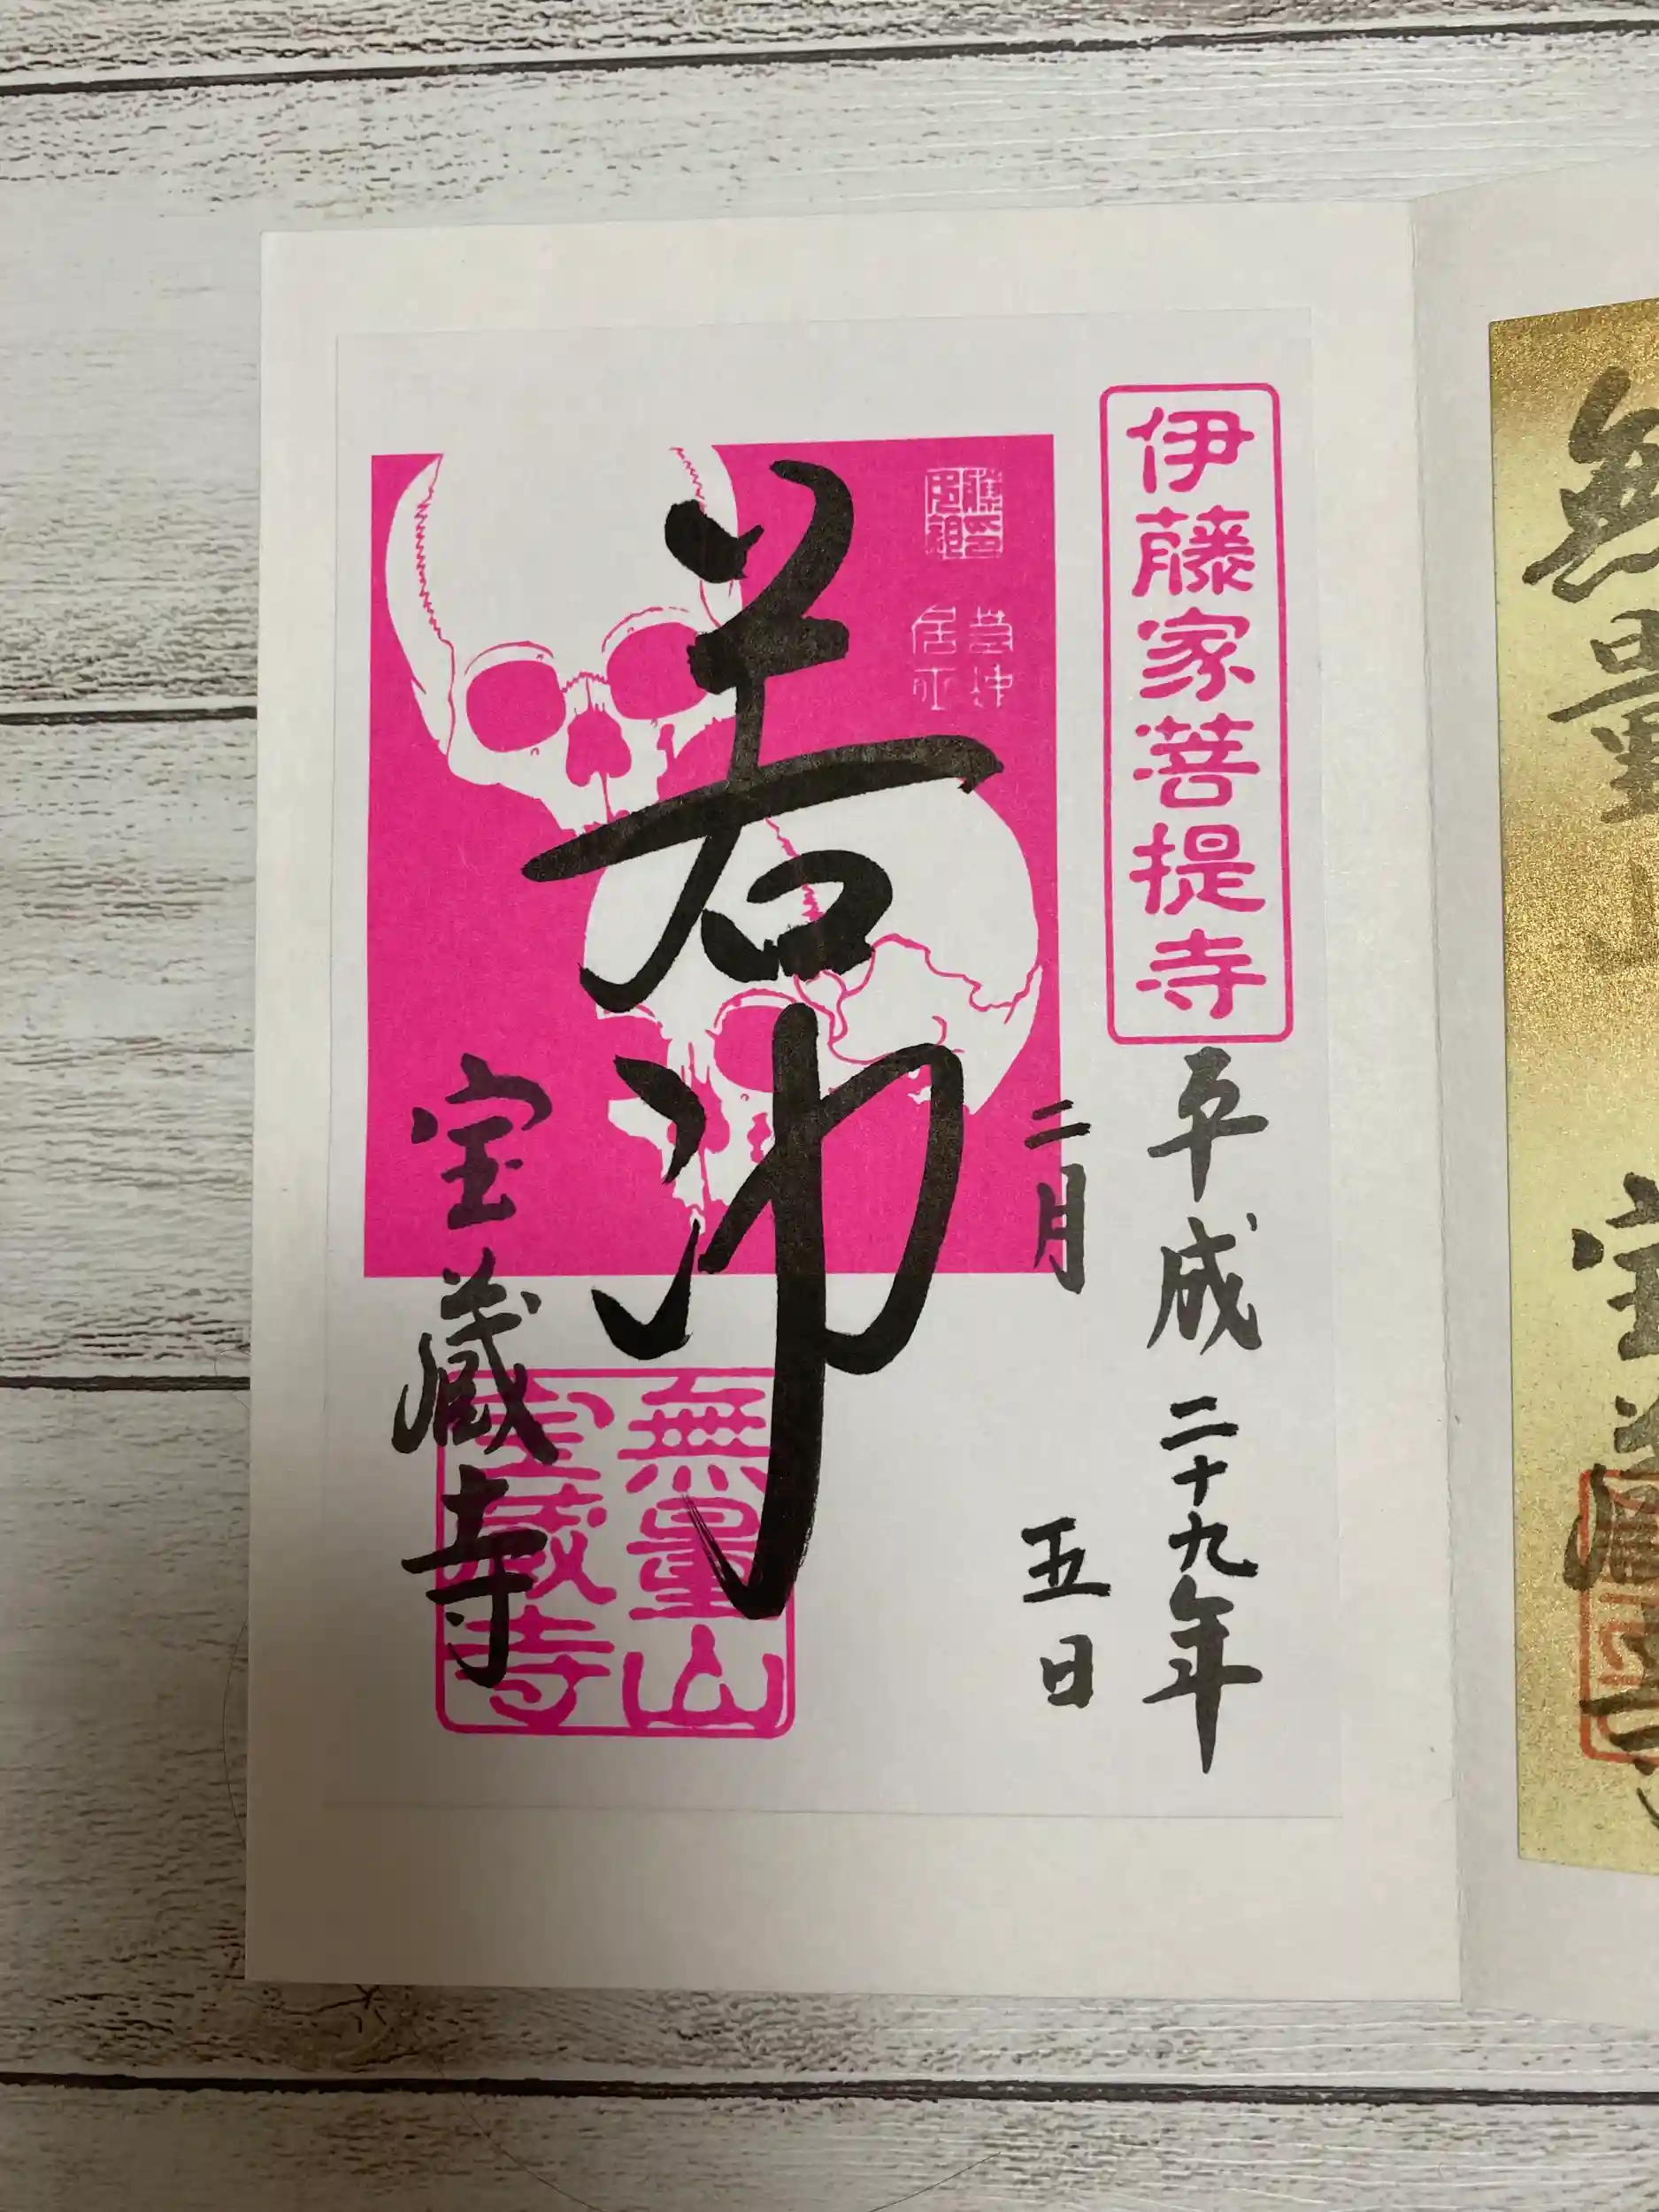 伊藤家菩提寺
平成二十九年
二月五日
若冲
宝蔵寺
無量山
宝蔵寺
無量山